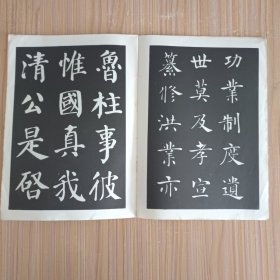 功業制度遺
世莫及孝宣
纂修洪業亦
魯柱事彼
惟國真我
清公是啓